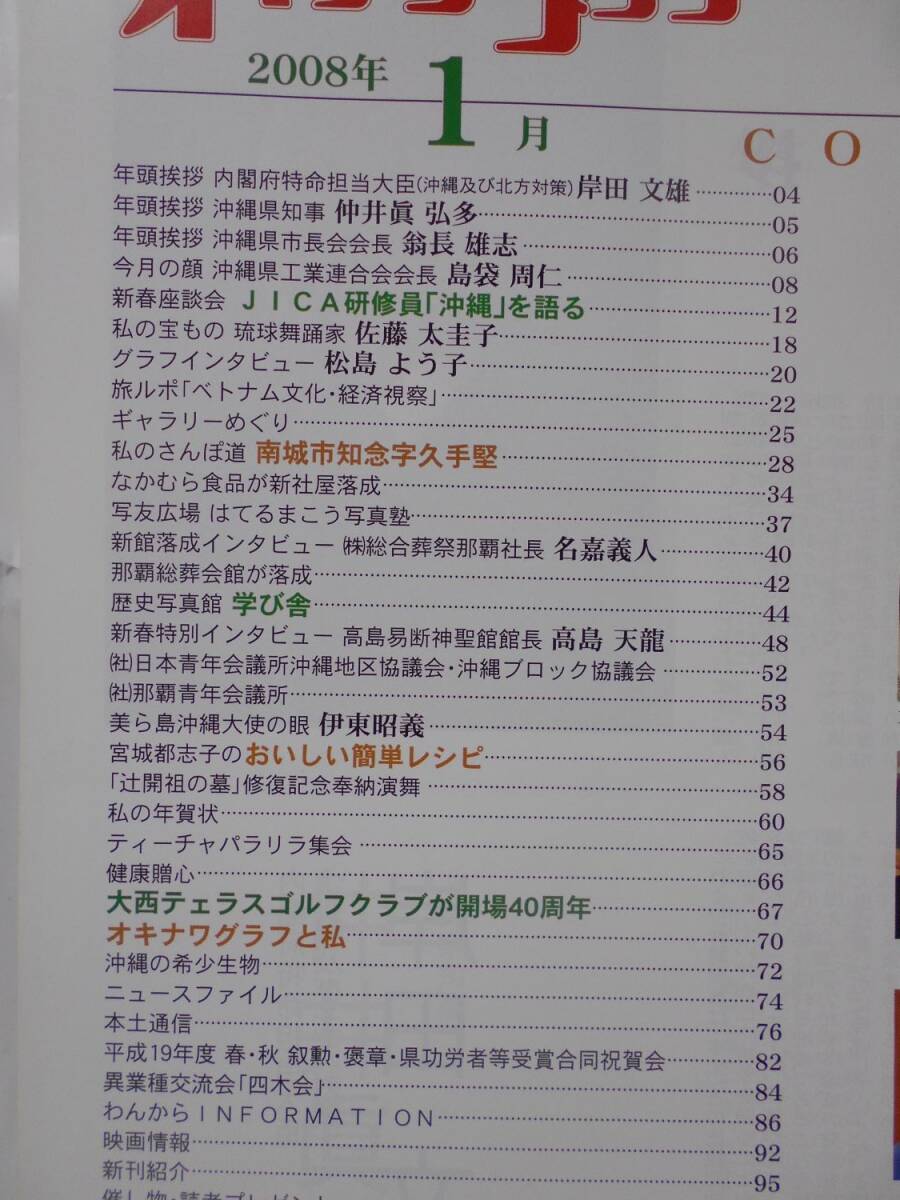 2008年
1月
CO
年頭挨拶 内閣府特命担当大臣(沖縄及び北方対策)岸田 文雄…………04
年頭挨拶 沖縄県知事 仲井眞 弘多…………05
年頭挨拶 沖縄県市長会会長 翁長 雄志…………06
今月の顔 沖縄県工業連合会会長 島袋 周仁…………08
新春座談会 JICA研修員「沖縄」を語る…………12
私の宝もの 琉球舞踊家 佐藤 太圭子…………18
グラフインタビュー 松島 よう子…………20
旅ルポ「ベトナム文化・経済視察」…………22
ギャラリーめぐり…………25
私のさんぽ道 南城市知念字久手堅…………28
なかむら食品が新社屋落成…………34
写友広場 はてるまこう写真塾…………37
新館落成インタビュー ㈱総合葬祭那覇社長 名嘉義人…………40
那覇総葬会館が落成…………42
歴史写真館 学び舎…………44
新春特別インタビュー 高島易断神聖館館長 高島 天龍…………48
㈳日本青年会議所沖縄地区協議会・沖縄ブロック協議会…………52
㈳那覇青年会議所…………53
美ら島沖縄大使の眼 伊東昭義…………54
宮城都志子のおいしい簡単レシピ…………56
「辻開祖の墓」修復記念奉納演舞…………58
私の年賀状…………60
ティーチャパラリラ集会…………65
健康贈心…………66
大西テェラスゴルフクラブが開場40周年…………67
オキナワグラフと私…………70
沖縄の希少生物…………72
ニュースファイル…………74
本土通信…………76
平成19年度 春・秋 叙勲・褒章・県功労者等受賞合同祝賀会…………82
異業種交流会「四木会」…………84
わんからINFORMATION…………86
映画情報…………92
新刊紹介…………95